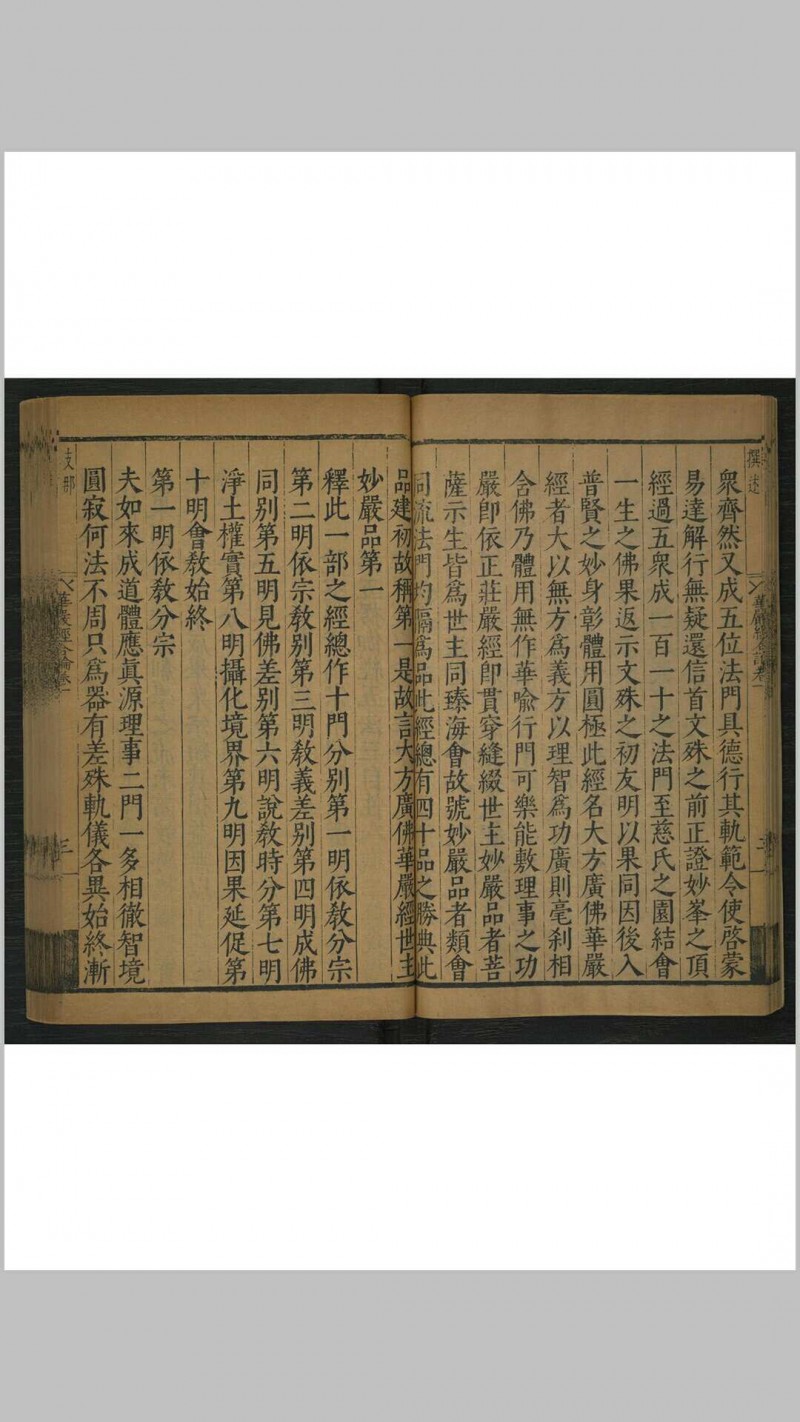 撰述
衆齊然又成五位法門具德行其軌範令使啓蒙
易達解行無疑還信首文殊之前正證妙峯之頂
經過五衆成一百一十之法門至慈氏之園結會
一生之佛果返示文殊之初友明以果同因後入
普賢之妙身彰體用圓極此經名大方廣佛華嚴
經者大以無方爲義方以理智爲功廣則毫刹相
含佛乃體用無作華喻行門可樂能敷理事之功
嚴即依正莊嚴經即貫穿縫綴世主妙嚴品者菩
薩示生皆爲世主同臻海會故號妙嚴品者類會
同流法門均隔爲品此經總有四十品之勝典此
品建初故稱第一是故言大方廣佛華嚴經世主
妙嚴品第一
釋此一部之經總作十門分别第一明依教分宗
第二明依宗教别第三明教義差别第四明成佛
同别第五明見佛差别第六明說教時分第七明
淨土權實第八明攝化境界第九明因果延促第
十明會教始終
第一明依教分宗
夫如來成道體應眞源理事二門一多相徹智境
圓寂何法不周只爲器有差殊軌儀各異始終漸
支那
華嚴經合論卷一
三